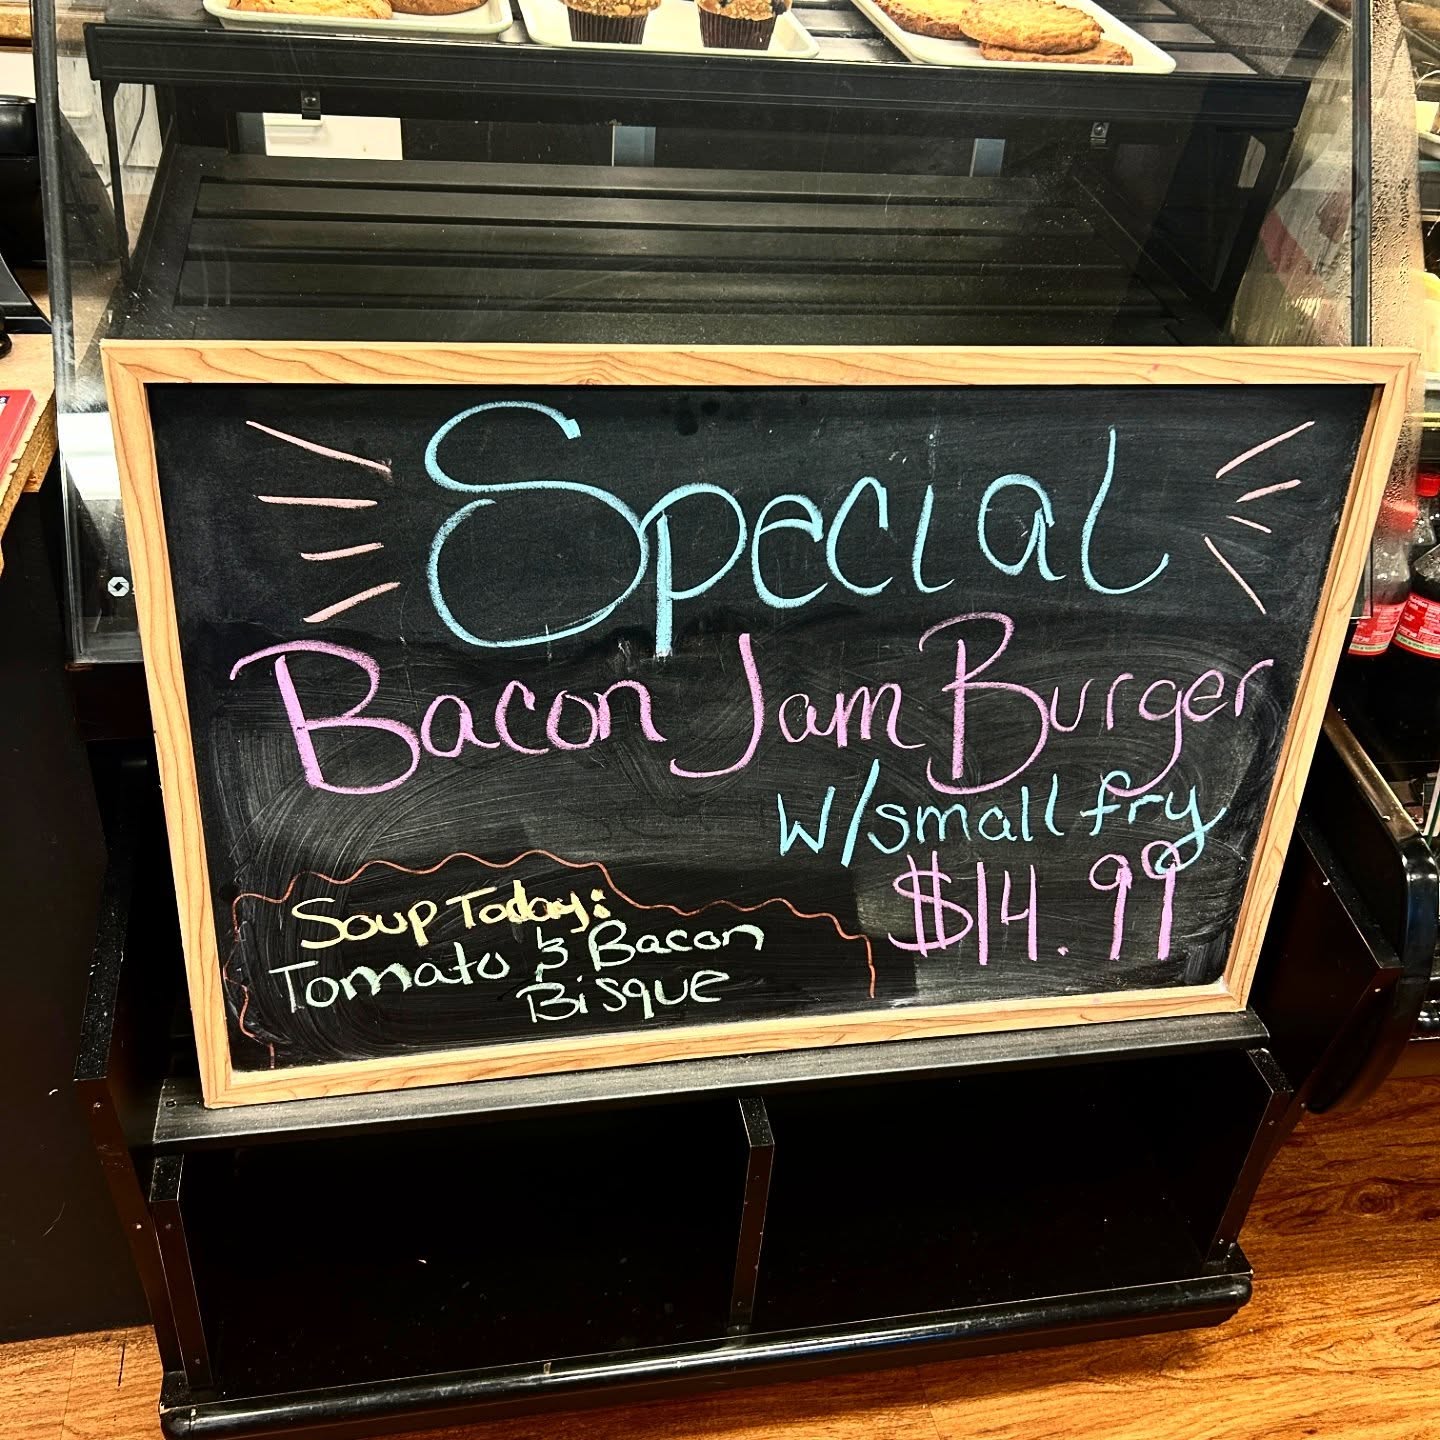 Special
Bacon Jam Burger
w/small fry
$14.99
Soup Today:
Tomato & Bacon
Bisque